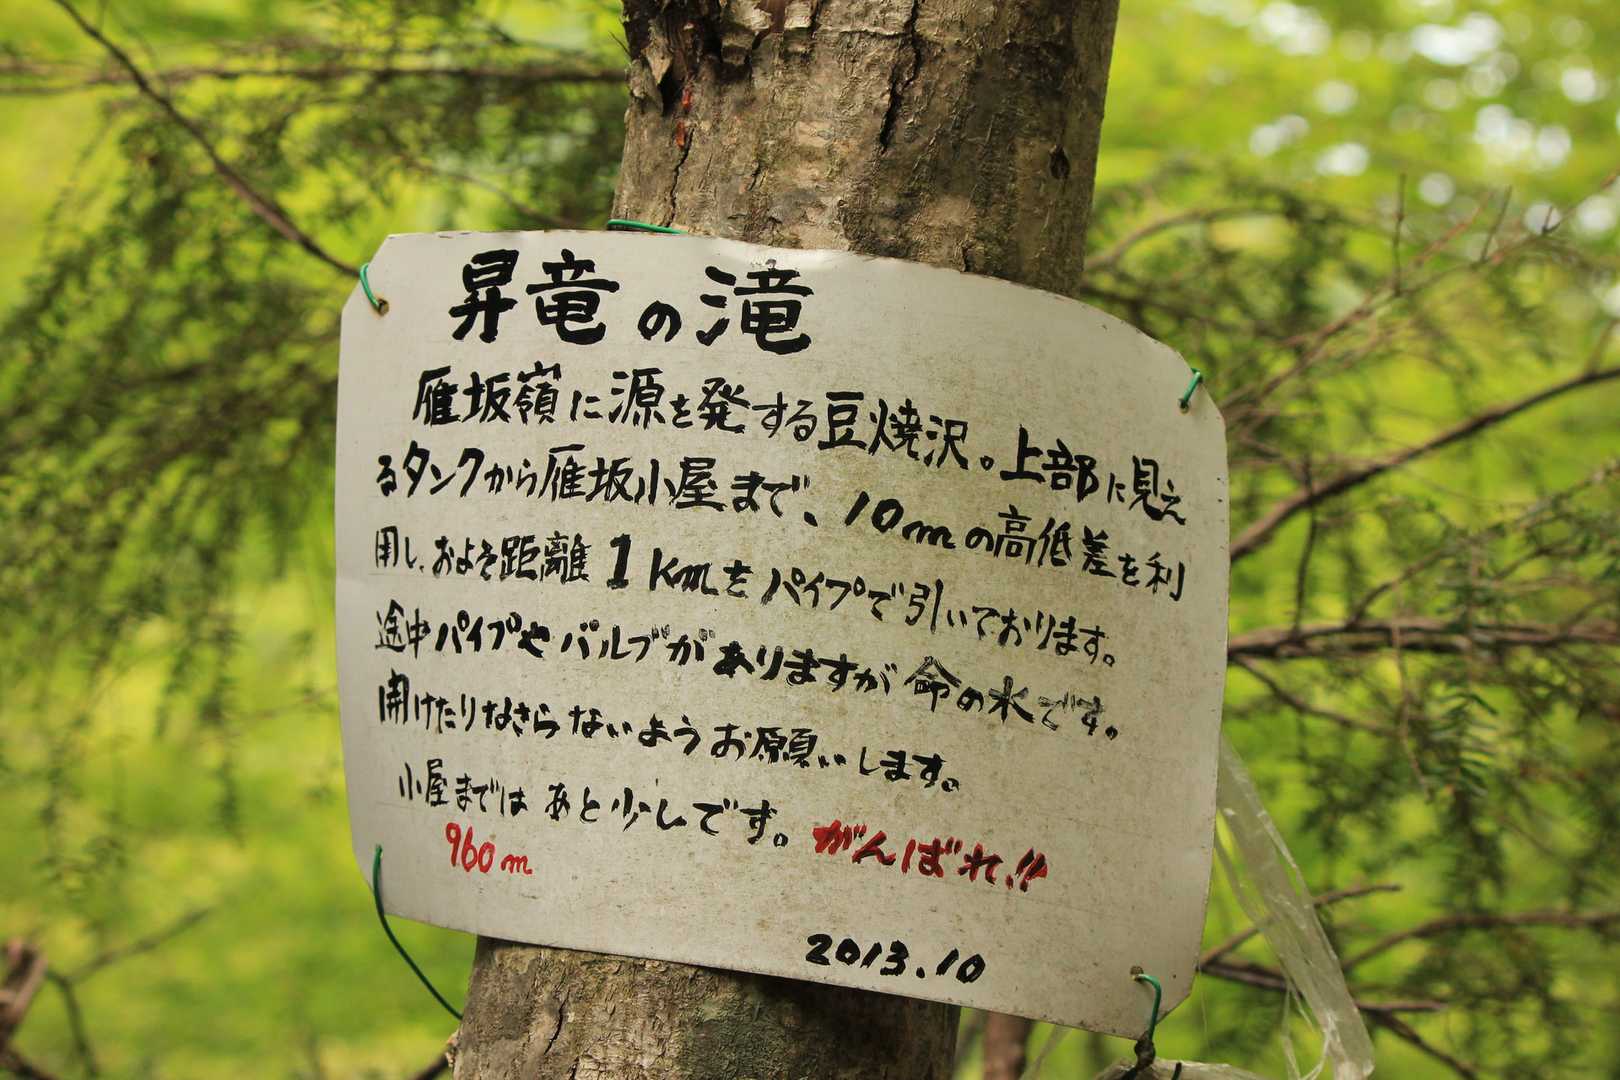 昇竜の滝
雁坂嶺に源を発する豆焼沢。上部に見え
るタンクから雁坂小屋まで、10mの高低差を利
用し、およそ距離1kmをパイプで引いております。
途中パイプやバルブがありますが命の水です。
開けたりなさらないようお願いします。
小屋まではあと少しです。がんばれ!!
960m
2013.10